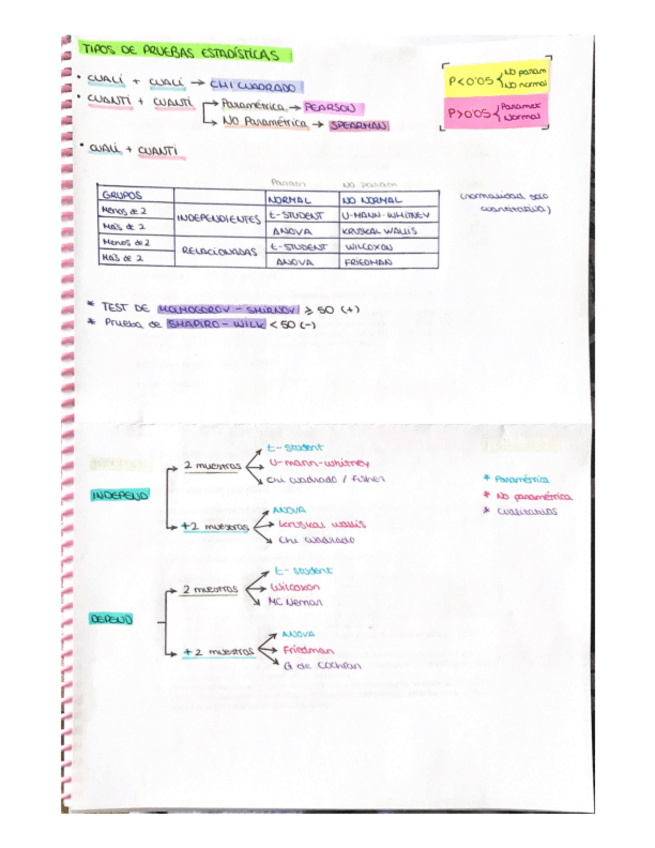 TIPOS DE PRUEBAS ESTADÍSTICAS
• CUALI + CUALI → CHI CUADRADO
• CUANTI + CUANTI → Paramétrica → PEARSON
→ NO Paramétrica → SPEARMAN
P<0'05 { NO param
NO normal
P>0'05 { Paramet
Normal
• CUALI + CUANTI
Param NO param
GRUPOS NORMAL NO NORMAL
Menos de 2 INDEPENDIENTES t-STUDENT U-MANN-WHITNEY
Más de 2 ANOVA KRUSKAL WALLIS
Menos de 2 RELACIONADAS t-STUDENT WILCOXON
Más de 2 ANOVA FRIEDMAN
(normalidad
cuantitativa)
* TEST DE KOLMOGOROV - SMIRNOV ≥ 50 (+)
* Prueba de SHAPIRO - WILK < 50 (-)
INDEPEND
2 muestras
t- Student
U-mann-whitney
Chi cuadrado / Fisher
+2 muestras
ANOVA
Kruskal wallis
Chi cuadrado
* Paramétrica
* No paramétrica
* Cualitativas
DEPEND
2 muestras
t- Student
Wilcoxon
MC Nemar
+ 2 muestras
ANOVA
Friedman
Q de Cochran